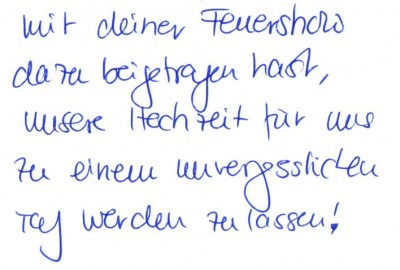 mit deiner Feuershow
dazu beigetragen hast,
unsere Hochzeit für uns
zu einem unvergesslichen
Tag werden zu lassen!